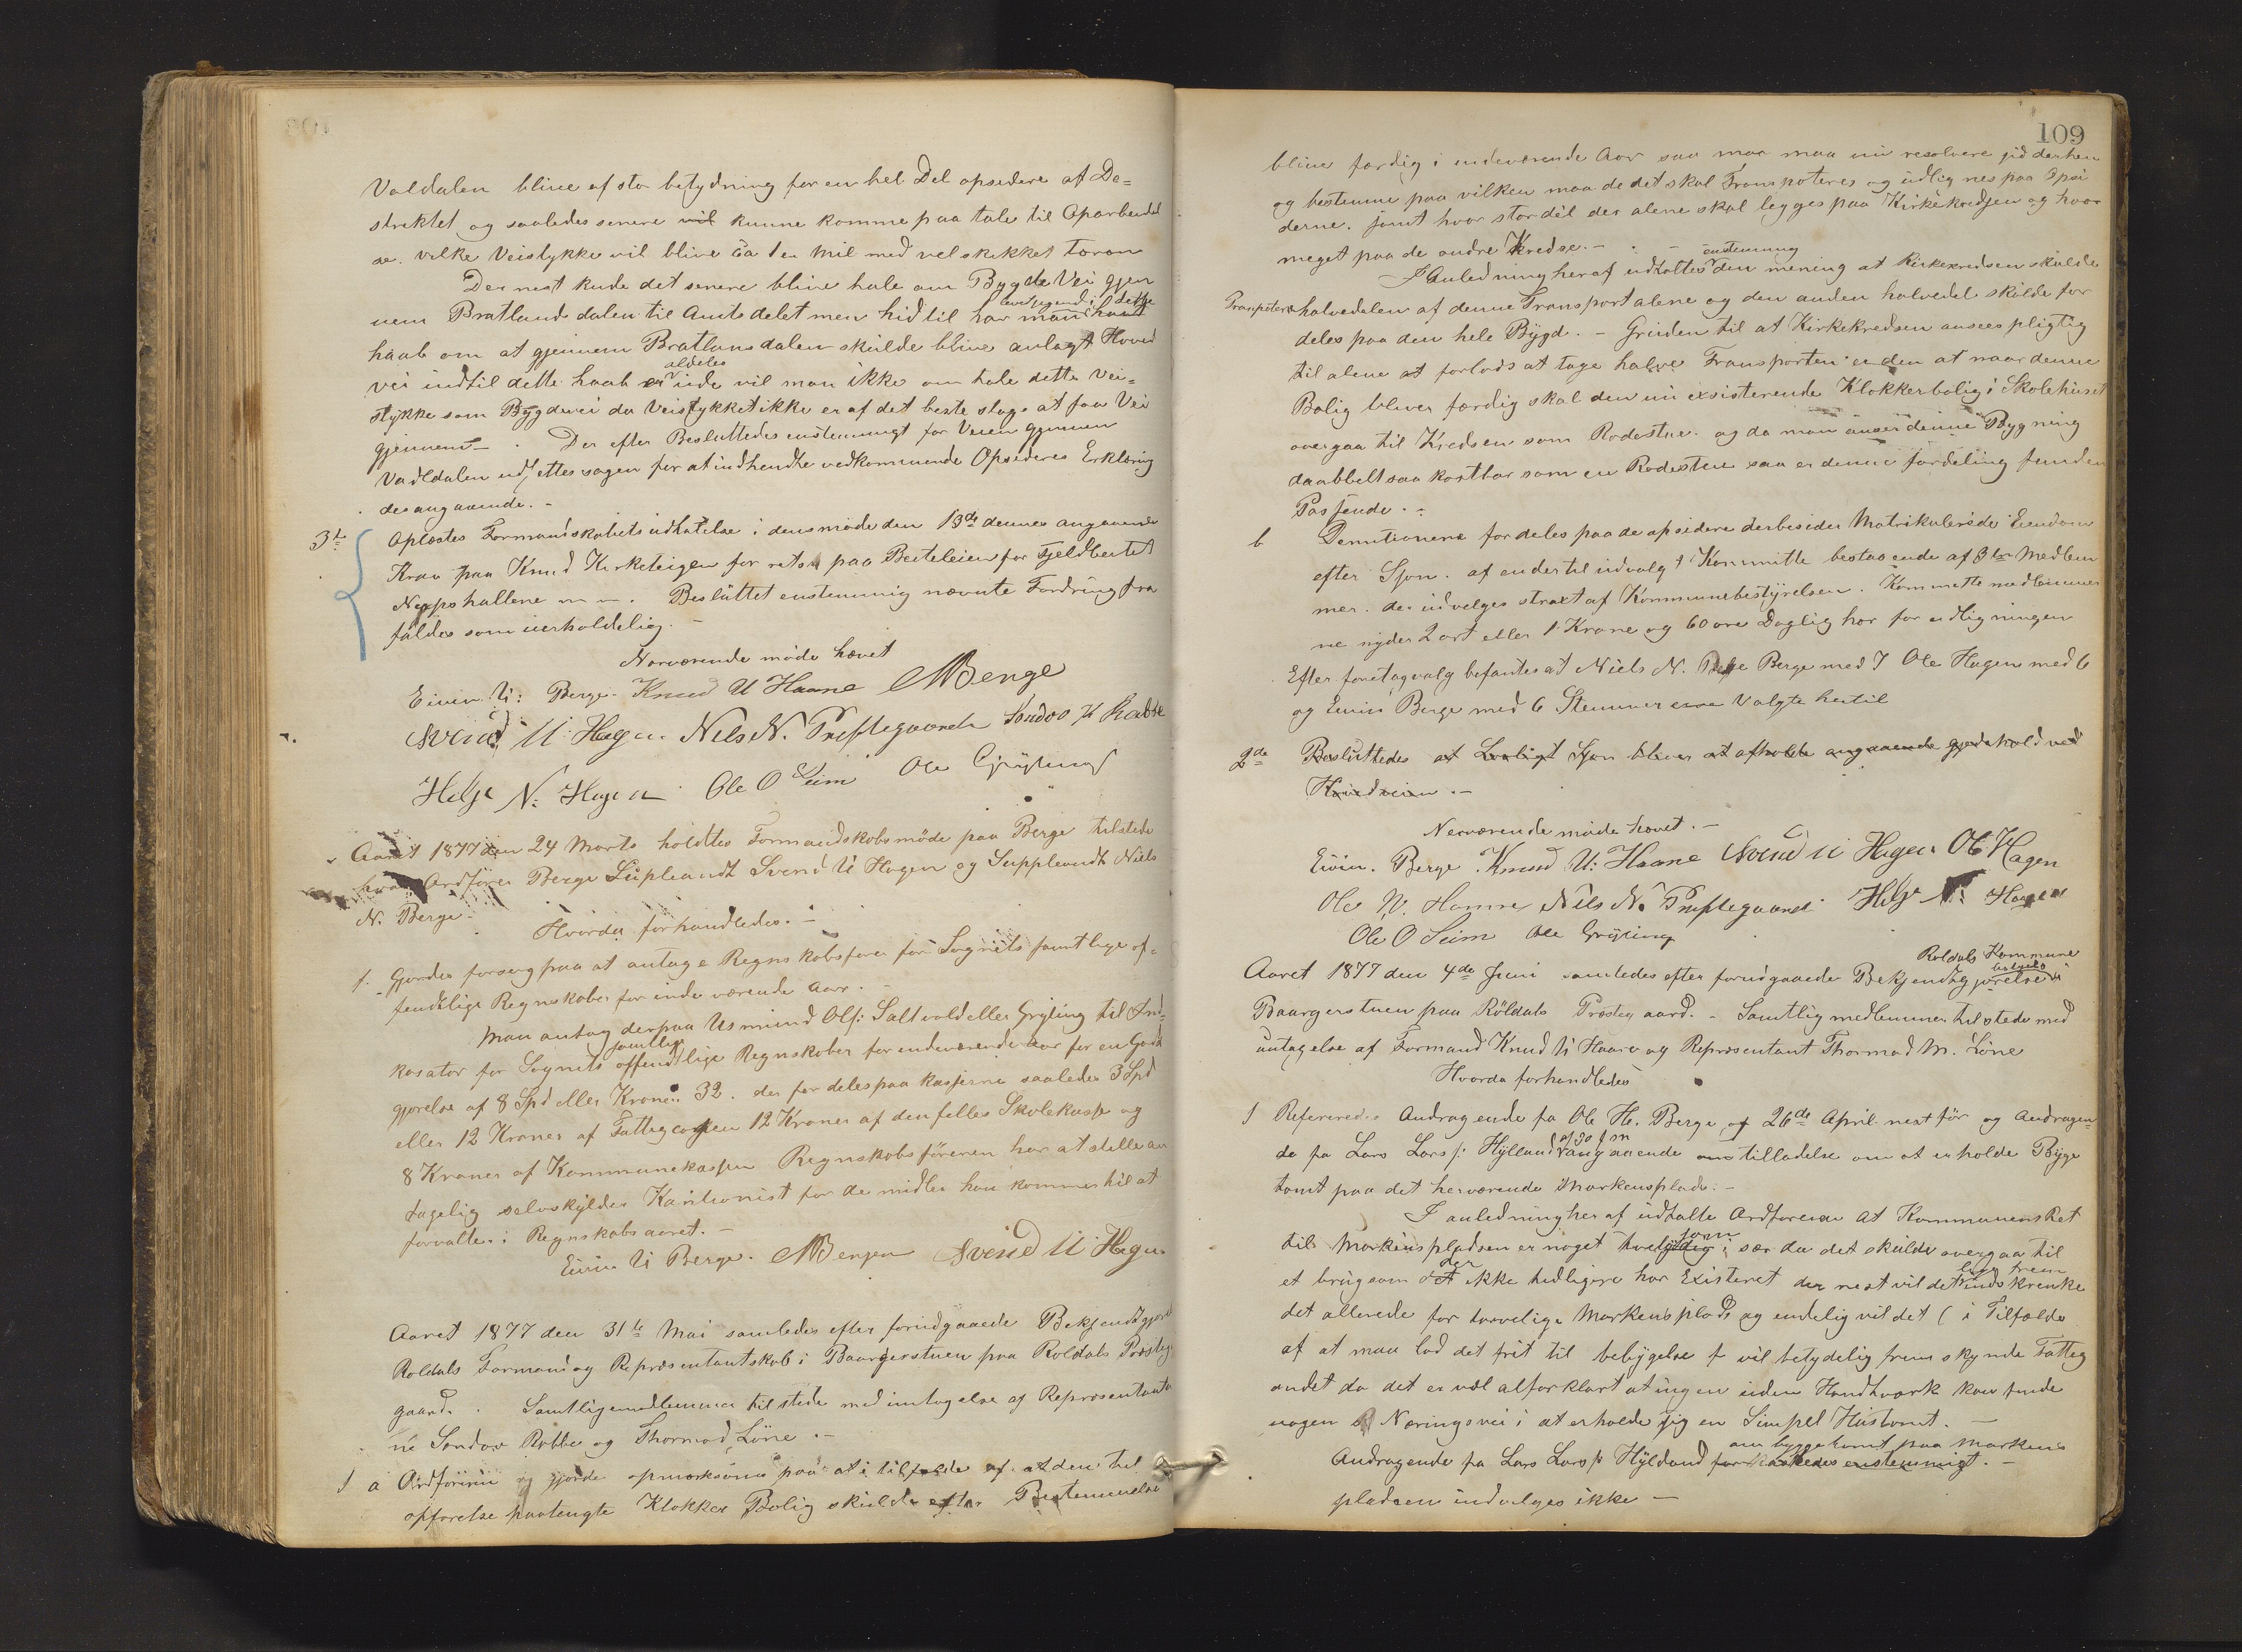 Valdalen blive af stor betydning for en hel Del opsidere af De=
striktet og saaledes senere vil kunne komme paa tale til Oparbeidel
se. vilke Veistykke vil blive Ca 1 en Mil med vel skikket toren
Der nest kude det senere blive tale om Bygde Vei gjen
nem Bratlands dalen til Amts delet men hid til har man havt
haab om at gjennem Bratlansdalen skulde blive anlagt Hoved
aldeles
vei indtil dette haab er ude vil man ikke om tale dette Vei=
stykke som Bygdevei da Veistykket ikke er af det beste slags at faa Vei
gjennem - . Der efter Besluttedes enstemmigt for Veien gjennem
Valdalen udsettes sagen for at indhendte vedkommende Opsideres Erklæring
desangaaende. -
3de Oplæstes Formandskabets udtalelse i dens møde den 13de dennes angaaende
Krav paa Knud Kirketeigen for rets paa Beiteleien for Fjeldbeitet
Nupshallene m m. Besluttet enstemmig nævnte Fordring fra
faldes som uerholdelig. -
Nærværende møde hævet
Eivin U: Berge. Knud U Haave NNBerge
Svend U Hagen. Nels N. Prestegaard Sondov K Rabbe
Helje N: Hagen Ole O Seim Ole Grytting
Aaret 1877 den 24 Marts holdtes Formandskabsmøde paa Berge tilstede
hvor Ordfører Berge Supleandt Svend U Hagen og Suppleandt Niels
N. Berge. Hvorda forhandledes. -
1. Gjordes forsøg paa at antage Regnskabsfører for Sognets samtlige of=
fendtlige Regnskaber for inde værende Aar. -
Man antog derpaa Asmund Ols: Saltvold eller Gryting til In=
samtlige
kasator for Sognets offendtlige Regnskaber for indeværende Aar for en Godt
gjørelse af 8 Spd eller Kroner 32. der for deles paa kasserne saaledes 3 Spd
eller 12 Kroner af Fattigcassen 12 Kroner af den felles Skolekasse og
8 Kroner af Kommunekassen Regnskabsføreren har at stille an
tagelig selvskyldes Kautionist for de midler han kommer til at
forvalte i Regnskabsaaret. -
Eivin U Berge. NNBergen Svend U Hagen
Aaret 1877 den 31te Mai samledes efter forudgaaede Bekjendtgjørel
Roldals Formand og Representantskab i Baargerstuen paa Roldals Præsteg
gaard. . Samtlige medlemmer til stede med untagelse af Representante
ne Sondov Rabbe og Thormod Løne. -
1 a Ordføreren gjorde opmerksom paa at i tilfælde af at den til
opførelse paatengte Klokker Bolig skulde efter Bestemmelse
109
blive færdig i indeværende Aar saa maa man nu resolvere sid derhen
og bestemme paa vilken maade det skal Transpoteres og udlignes paa Opsi
derne. samt hvor stor del der alene skal legges paa Kirkekredsen og hvor
meget paa de andre Kredse. -
enstemmig
I Anledning heraf udtaltes den mening at Kirkekredsen skulde
Transpotere halvedelen af denne Transport alene og den anden halvedel skulde for
deles paa den hele Bygd. - Grunden til at Kirkekredsen ansees pligtig
til alene at forlods at tage halve Transporten er den at naar denne
Bolig bliver færdig skal den nu exsisterende Klokkerbolig i Skolehuset
overgaa til Kredsen som Rodestue. og da man anser denne Bygning
daabbelt saa kostbar som en Rodestue saa er denne fordeling funden
Passende. -
b Denutionene fordeles paa de opsidere derbesider Matrikulerede Eiendom
efter Sjøn. af en dertil udvalgt Kommitte bestaaende af 3de Medlem
mer. der udvelges straxt af Kommunebestyrelsen. Kommitte medlemmer
ne nyder 2 ort eller 1 Krone og 60 øre Daglig hver for udligningen
Efter foretag valg befantes at Niels N. Berge med 7 Ole Hagen med 6
og Eivin Berge med 6 Stemmer Valgte hertil
2de Besluttedes at Lovligt Sjøn bliver at afholde angaaende gjerdehold ved
Hovedveien. -
Nærværende møde hævet. -
Eivin. Berge. Knud U: Haave Svend U Hagen Ol H Hagen
Ole N. Hamre Nils N. Prestegaard Helje N: Hagen
Ole O Seim Ole Gryting
Roldals Kommune
bestyrelse
Aaret 1877 den 4de Juni samledes efter forudgaaede Bekjendtgjørelse i
Baargerstuen paa Röldals Præstegaard. - Samtlig medlemmer tilstede med
untagelse af Formand Knud U Haave og Representant Thormod M. Løne
Hvorda forhandledes
1 Refereredes Andragende fra Ole H. Berge af 26de April nest før og Andragen=
de fra Lars Lars s: Hylland af 30 f m angaaende tilladelse om at erholde Bygge
tomt paa det herværende Markensplads. -
I anledning her af udtalte Ordføreren at Kommunens Ret
til Markenspladsen er noget tvetydig i sær da det skulde overgaa til
et brug som der ikke tidligere har Existeret der nest vil det indskrenke
det allerede for snevelige Markensplads og endelig vil det ( i Tilfælde
af at man lod det frit til bebygelse ) vil betydelig fremskynde Fattig
andet da det er vel alfor klart at ingen uden Handtværk kan finde
nogen Næringsvei i at erholde sig en Simpel Hustomt. -
om byggetomt paa Markens
Andragende fra Lars Lars s Hylland forkastedes enstemmigt. -
pladsen indvilges ikke -